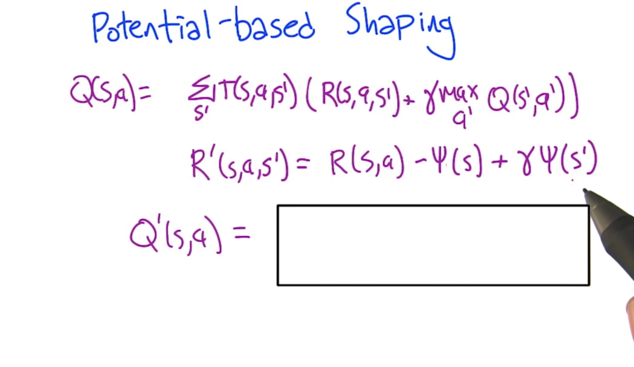 Potential-based Shaping
Q(s,a) = Σs' T(s,a,s') (R(s,a,s') + γ max a' Q(s',a'))
R'(s,a,s') = R(s,a) - Ψ(s) + γ Ψ(s')
Q'(s,a) =